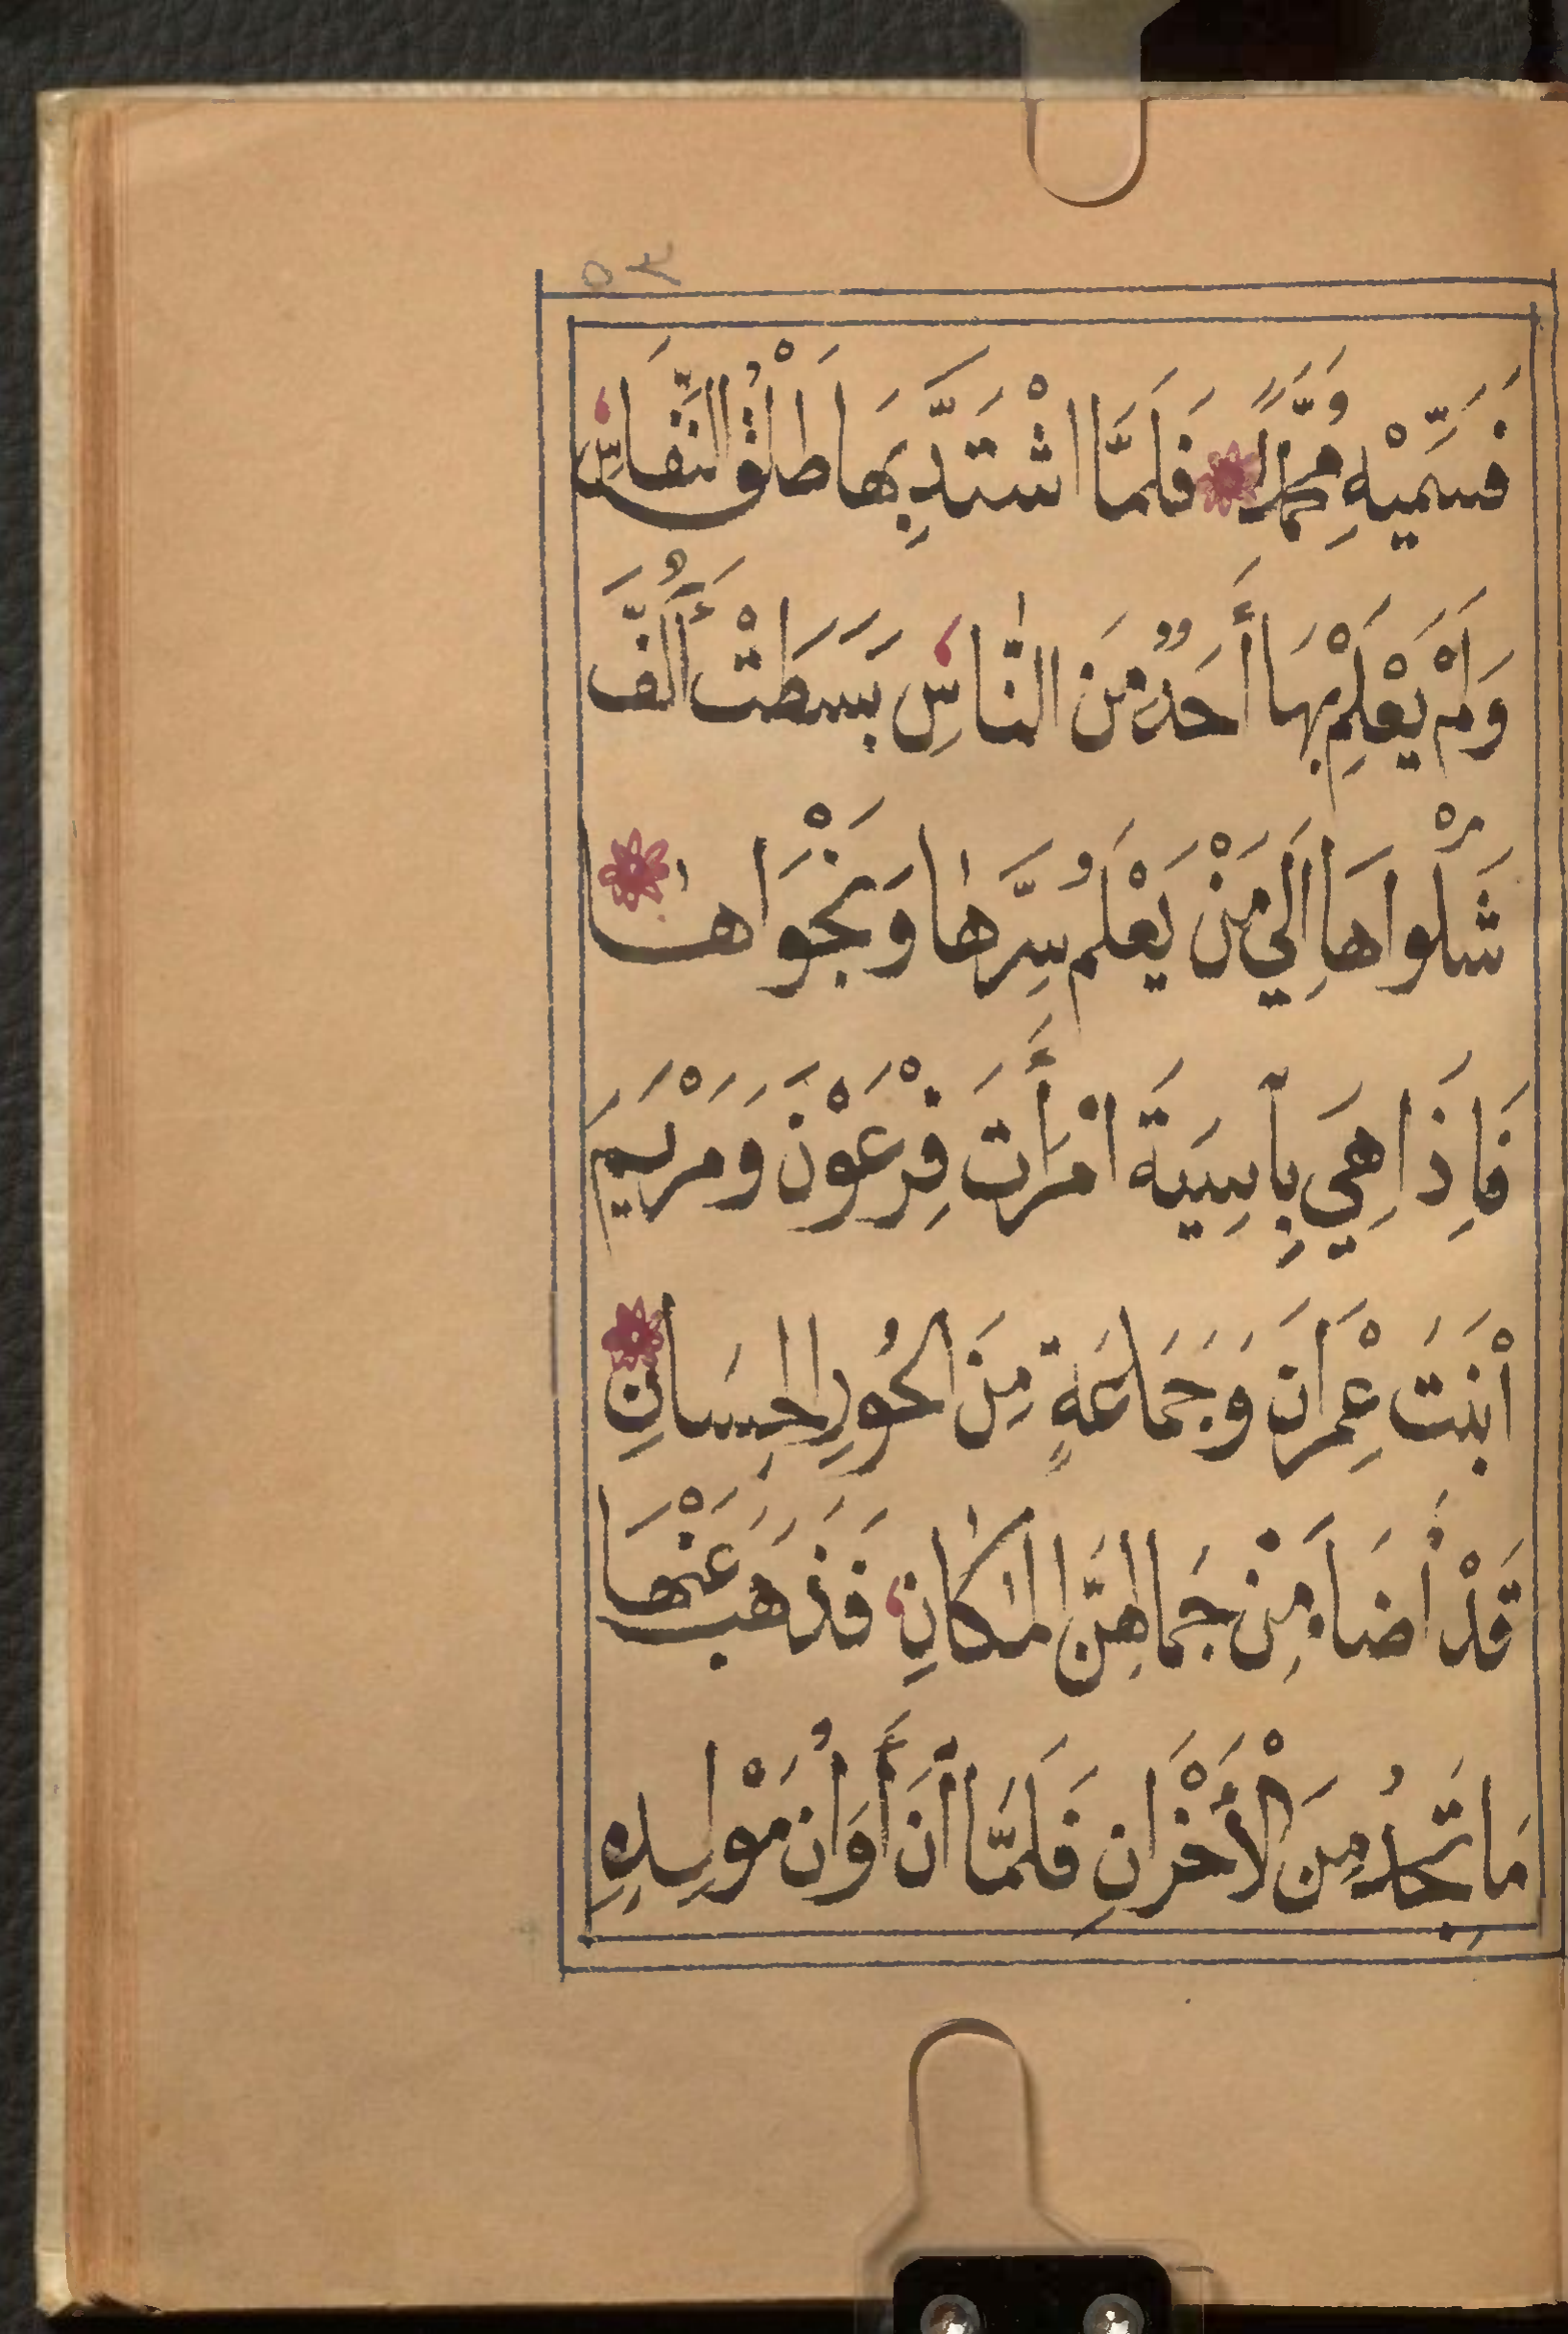 ٥٣
فَسَمِّيْهِ مُحَمَّدًا فَلَمَّا اشْتَدَّ بِهَا طَلْقُ النِّفَاسِ
وَلَمْ يَعْلَمْ بِهَا أَحَدٌ مِنَ النَّاسِ بَسَطَتْ أَكُفَّ
شَكْوَاهَا اِلَي مَنْ يَعْلَمُ سِرَّهَا وَنَجْوَاهَا
فَاِذَا هِيَ بِآسِيَةَ امْرَأَتَ فِرْعَوْنَ وَمَرْيَمَ
ابْنَتَ عِمْرَانَ وَجَمَاعَةٍ مِنَ الْحُورِ الْحِسَانِ
قَدْ أَضَاءَ مِنْ جَمَالِهِنَّ الْمَكَانِ فَذَهَبَ عَنْهَا
مَا تَجِدُ مِنَ الْأَحْزَانِ فَلَمَّا أنَ أَوَانُ مَوْلِدِهِ